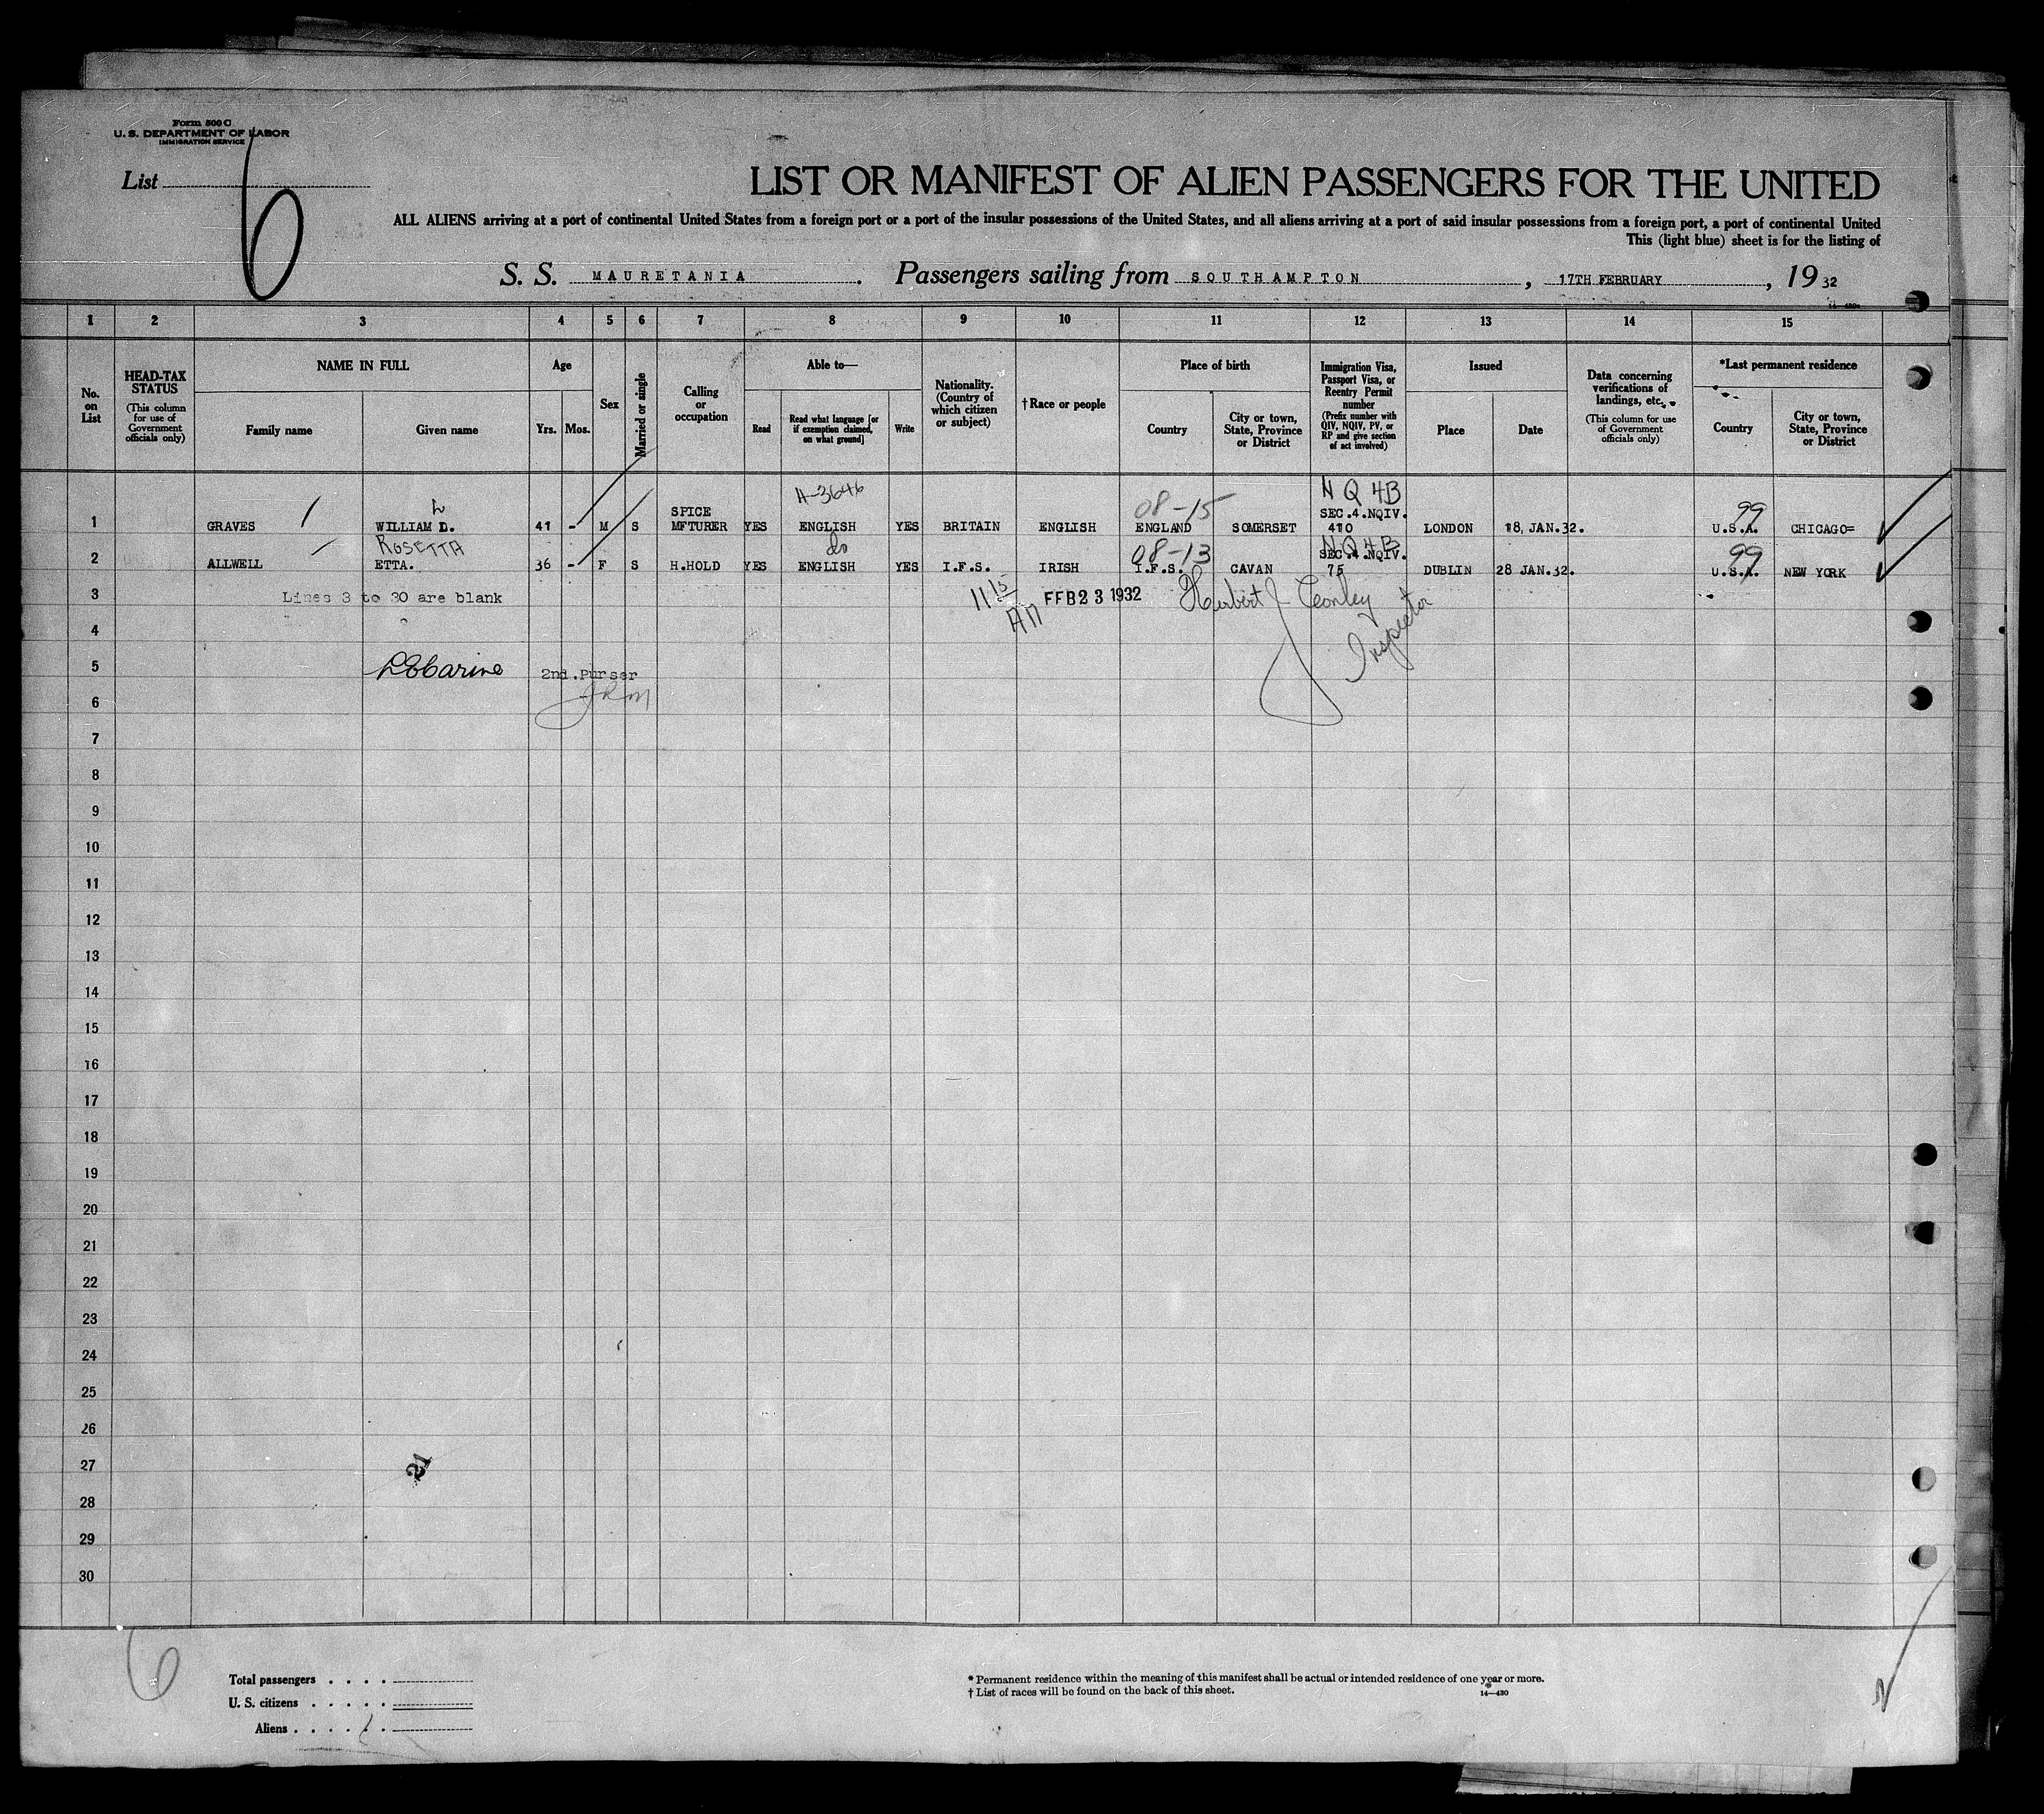 Form 500 C
U. S. DEPARTMENT OF LABOR
IMMIGRATION SERVICE
List 6
LIST OR MANIFEST OF ALIEN PASSENGERS FOR THE UNITED
ALL ALIENS arriving at a port of continental United States from a foreign port or a port of the insular possessions of the United States, and all aliens arriving at a port of said insular possessions from a foreign port, a port of continental United
This (light blue) sheet is for the listing of
S. S. MAURETANIA . Passengers sailing from SOUTHAMPTON , 17TH FEBRUARY , 19 32
1 2 3 4 5 6 7 8 9 10 11 12 13 14 15
No. on List
HEAD-TAX STATUS (This column for use of Government officials only)
NAME IN FULL
Family name Given name
Age
Yrs. Mos.
Sex
Married or single
Calling or occupation
Able to—
Read Read what language [or if exemption claimed, on what ground] Write
Nationality. (Country of which citizen or subject)
†Race or people
Place of birth
Country City or town, State, Province or District
Immigration Visa, Passport Visa, or Reentry Permit number (Prefix number with QIV, NQIV, PV, or RP and give section of act involved)
Issued
Place Date
Data concerning verifications of landings, etc. (This column for use of Government officials only)
*Last permanent residence
Country City or town, State, Province or District
A-3646 08-15 N Q 4B 99
SPICE SEC.4.NQIV.
1 GRAVES WILLIAM D. 41 - M S MFTURER YES ENGLISH YES BRITAIN ENGLISH ENGLAND SOMERSET 410 LONDON 18, JAN.32. U.S.A. CHICAGO=
ROSETTA do 08-13 N Q 4B 99
SEC.4.NQIV.
2 ALLWELL ETTA. 36 - F S H.HOLD YES ENGLISH YES I.F.S. IRISH I.F.S. CAVAN 75 DUBLIN 28 JAN.32. U.S.A. NEW YORK
3 Lines 3 to 30 are blank 11 15 AM FEB 23 1932 Herbert J Conley
Inspector
4
5 2nd.Purser
6
7
8
9
10
11
12
13
14
15
16
17
18
19
20
21
22
23
24
25
26
27 21
28
29
30
6
Total passengers . . . .
U. S. citizens . . . . .
Aliens . . . . . .
* Permanent residence within the meaning of this manifest shall be actual or intended residence of one year or more.
† List of races will be found on the back of this sheet. 14—430